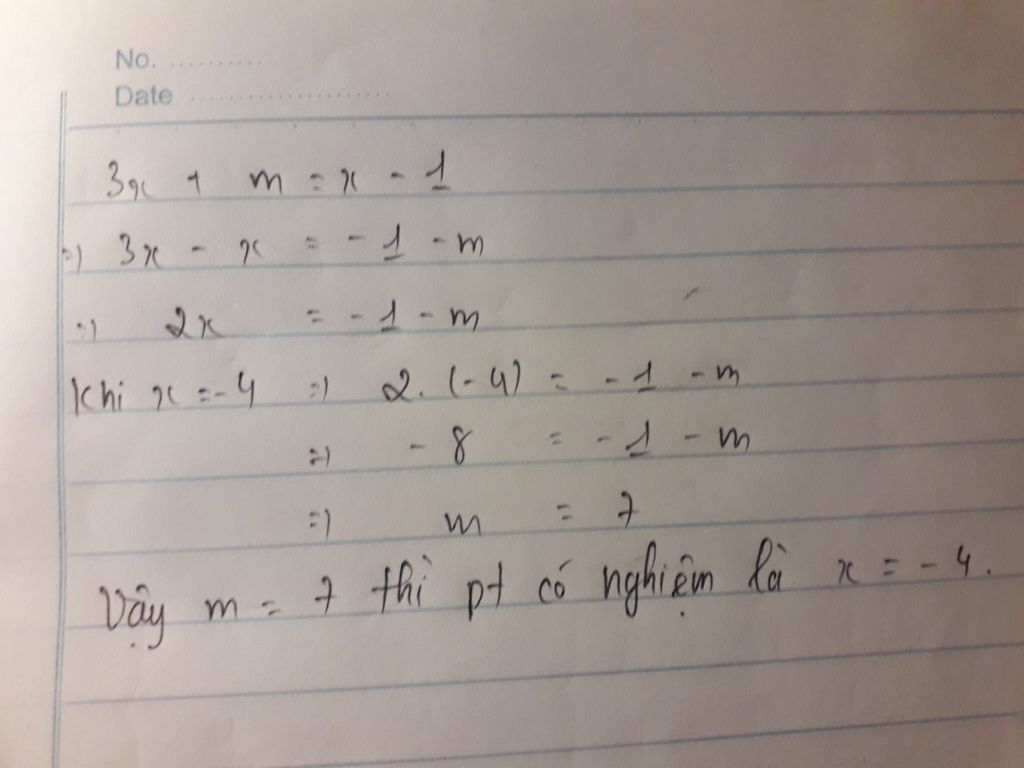 No. ..........
Date ....................
3x + m = x - 1
=) 3x - x = - 1 - m
=) 2x = - 1 - m
Khi x = - 4 =) 2. (- 4) = - 1 - m
=) - 8 = - 1 - m
=) m = 7
Vậy m = 7 thì pt có nghiệm là x = - 4.